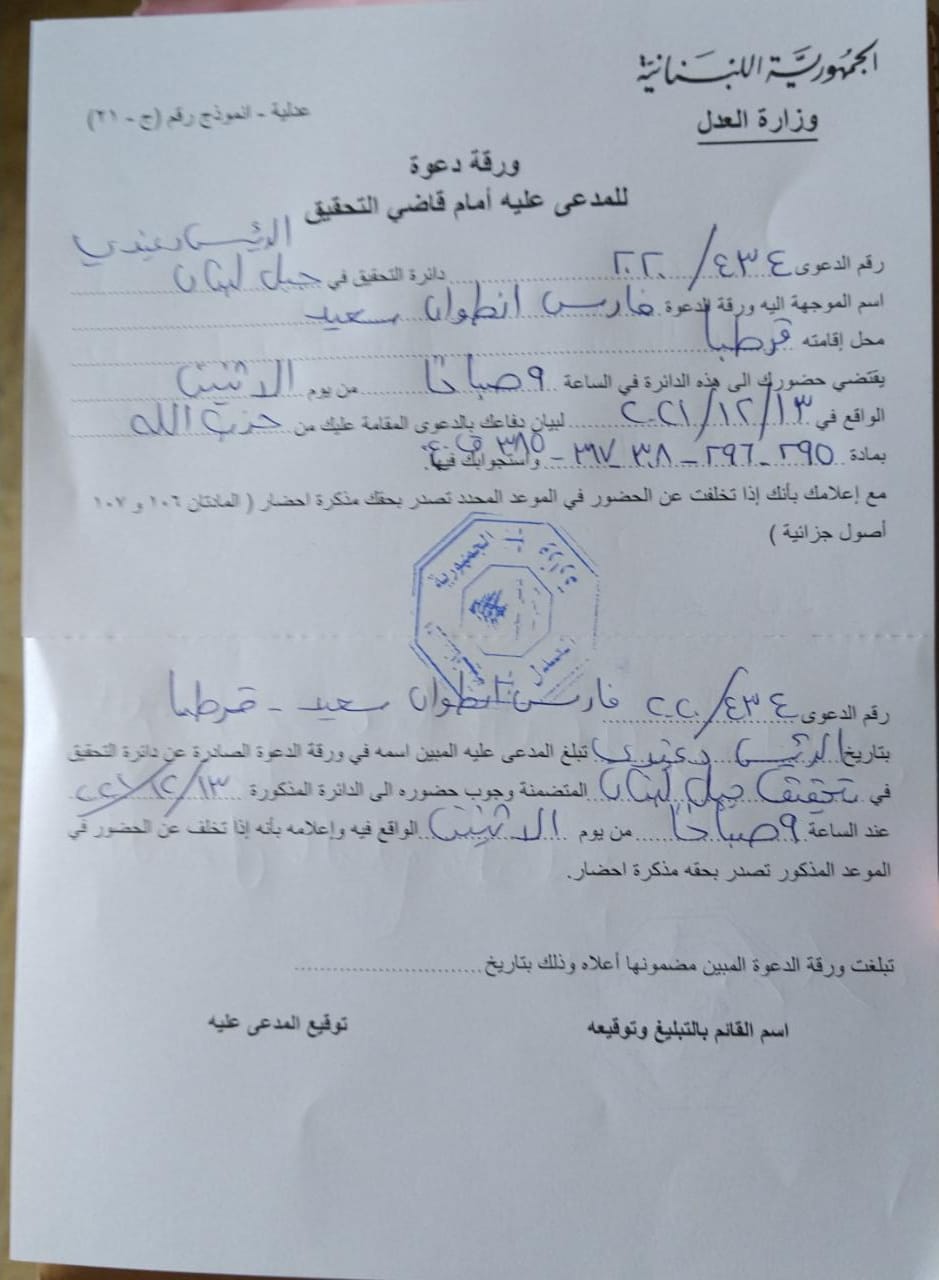 الجمهورية اللبنانية
وزارة العدل
عدلية - انموذج رقم (ج - ٢١)
ورقة دعوة
للمدعى عليه أمام قاضي التحقيق
رقم الدعوى ٤٣٤/٢٠٢٠ دائرة التحقيق في جبل لبنان الرئيس
اسم الموجهة اليه ورقة الدعوة فارس انطوان سعيد
محل إقامته قرطبا
يقتضي حضورك الى هذه الدائرة في الساعة ٩ صباحًا من يوم الاثنين
الواقع في ١٣/١٢/٢٠٢١ لبيان دفاعك بالدعوى المقامة عليك من حزب الله
بمادة ٢٩٥ - ٢٩٦ - واستجوابك فيها.
مع إعلامك بأنك إذا تخلفت عن الحضور في الموعد المحدد تصدر بحقك مذكرة احضار ( المادتان ١٠٦ و ١٠٧
أصول جزائية )
الجمهورية
رقم الدعوى ٤٣٤/٢٠٢٠ فارس انطوان سعيد - قرطبا
بتاريخ الرئيس تبلغ المدعى عليه المبين اسمه في ورقة الدعوة الصادرة عن دائرة التحقيق
في تحقيق جبل لبنان المتضمنة وجوب حضوره الى الدائرة المذكورة ١٣/١٢/٢٠٢١
عند الساعة ٩ صباحًا من يوم الاثنين الواقع فيه وإعلامه بأنه إذا تخلف عن الحضور في
الموعد المذكور تصدر بحقه مذكرة احضار.
تبلغت ورقة الدعوة المبين مضمونها أعلاه وذلك بتاريخ
اسم القائم بالتبليغ وتوقيعه
توقيع المدعى عليه